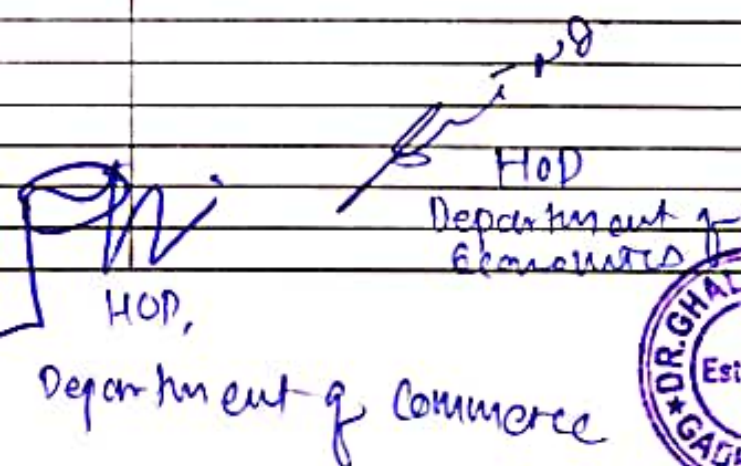 HOD
Department of
Economics
HOD,
Department of Commerce
DR.GHAL
Est
GADH